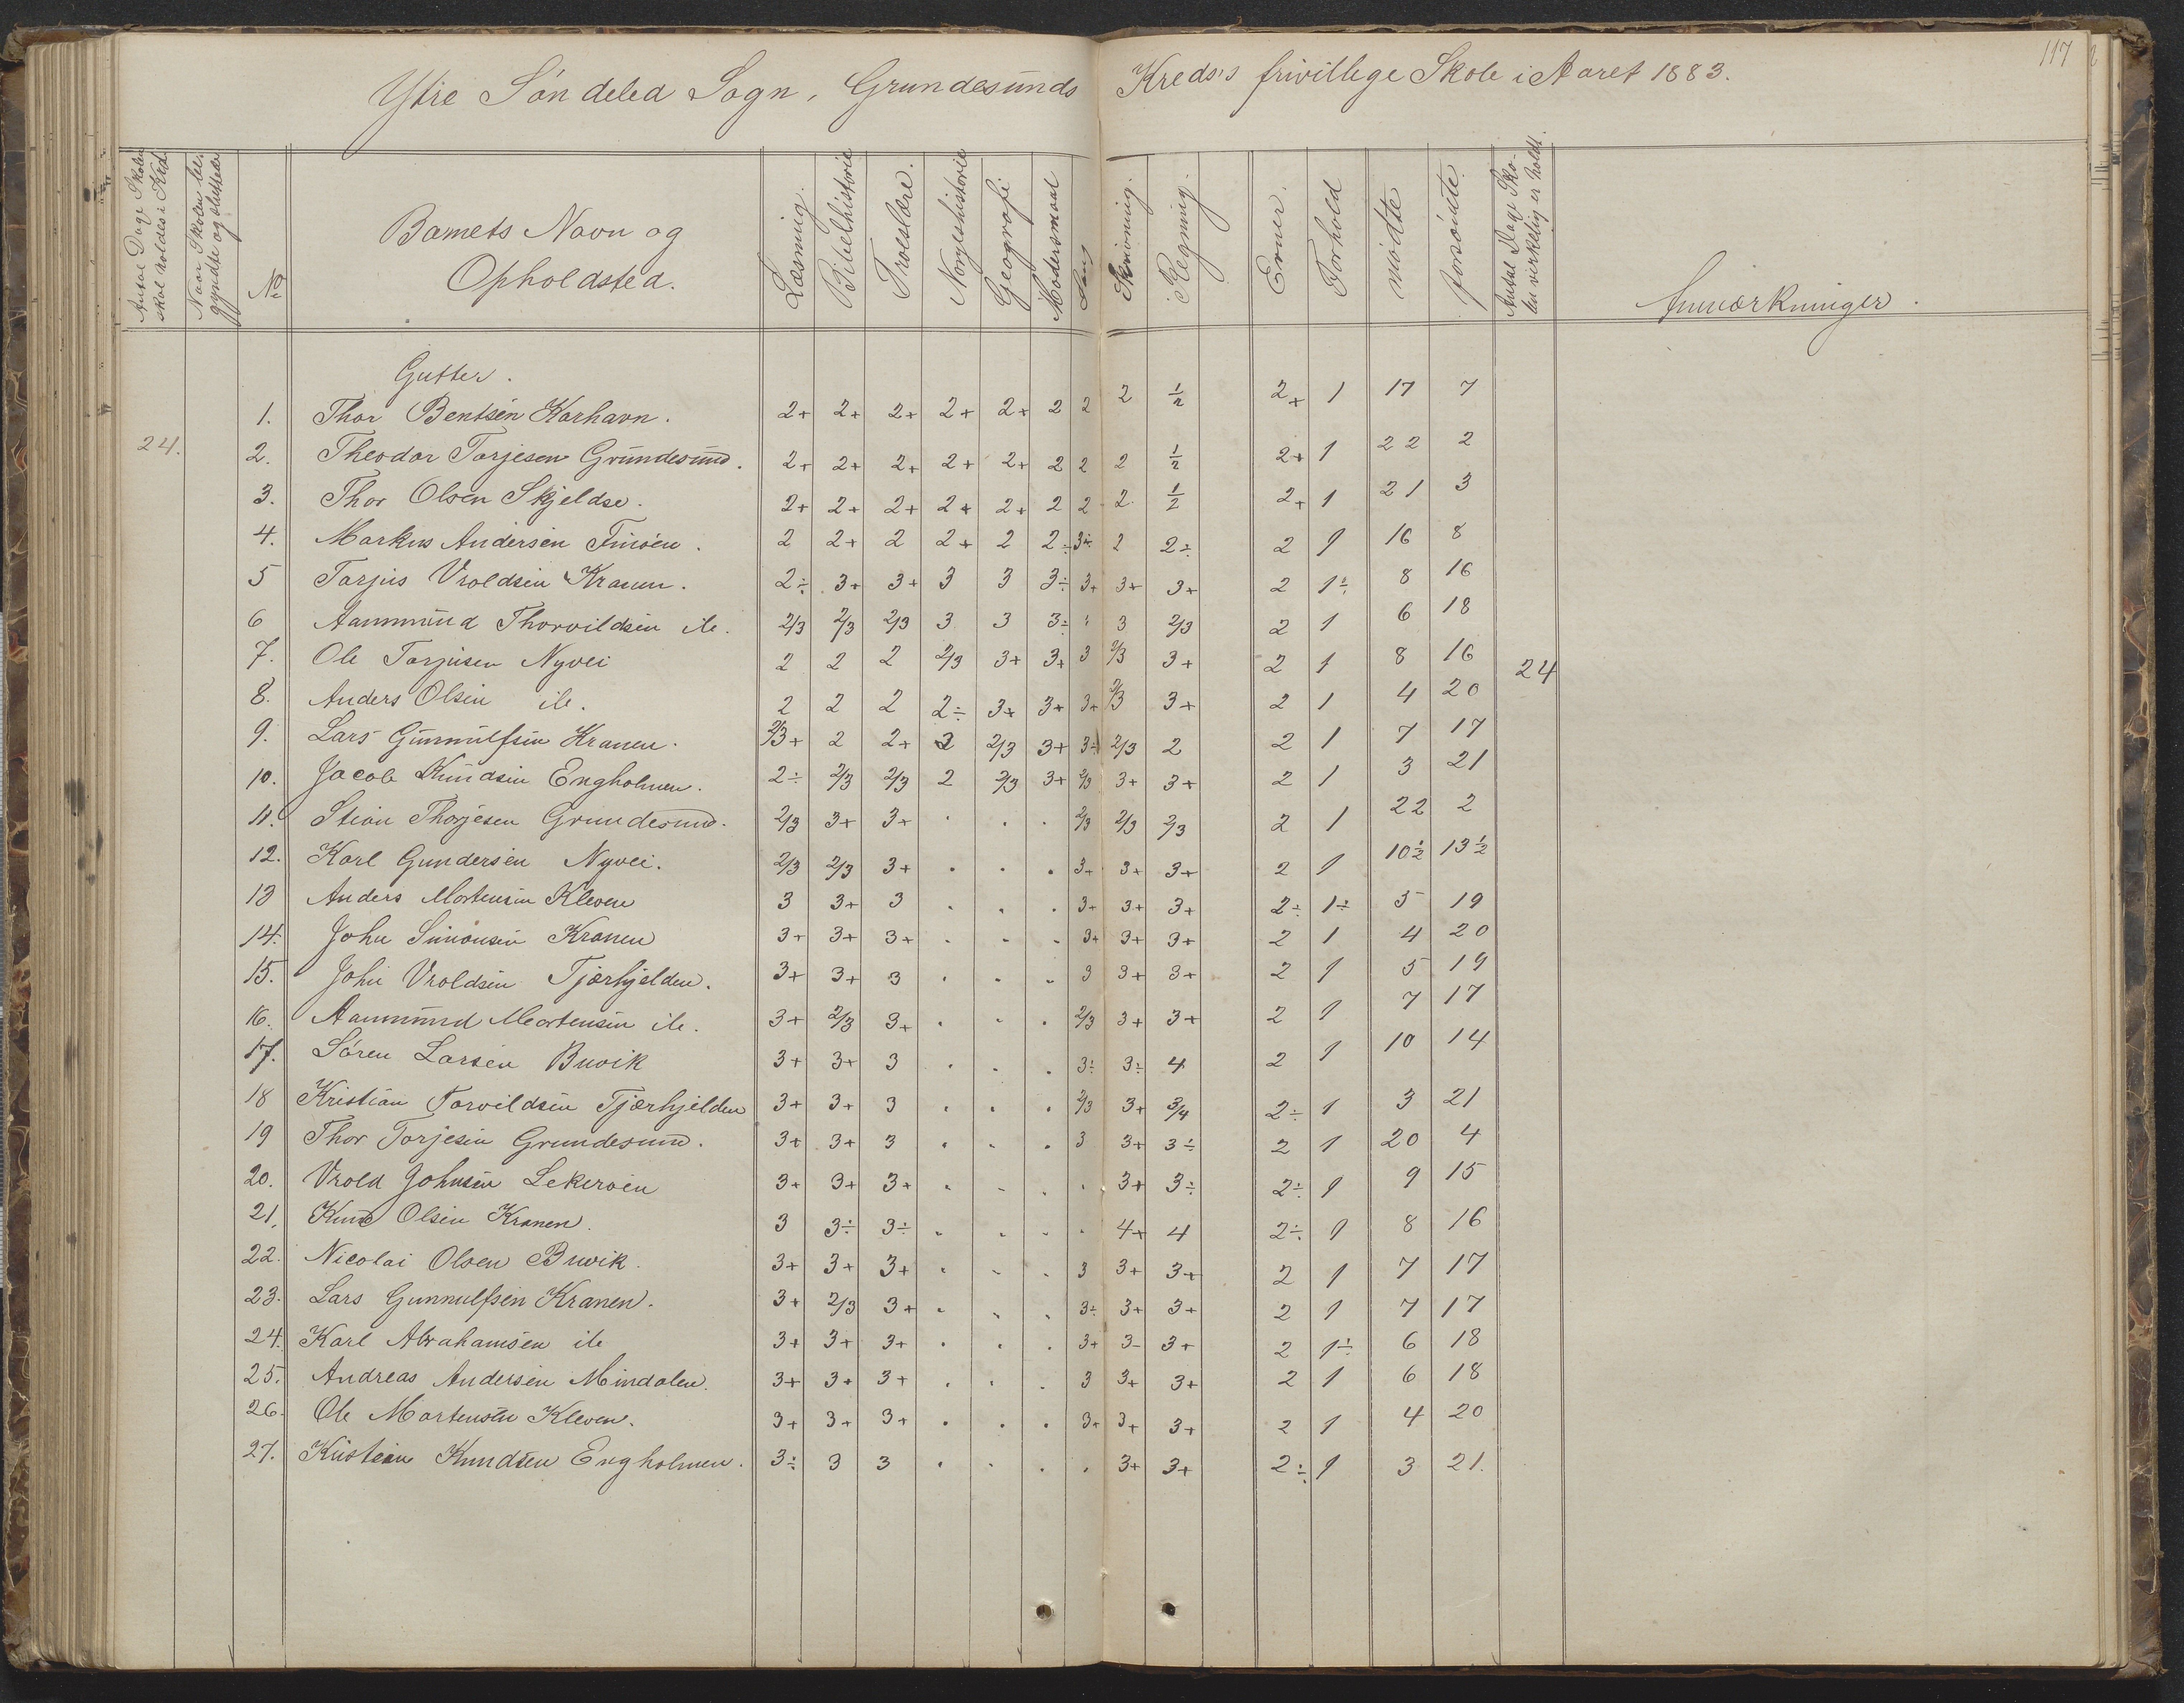 117
Ytre Söndeled Sogn, Grundesunds Kreds's frivillege Skole i Aaret 1883.
Antal Dage Skolen skal holdes i Kred.
Naar Skolen begyndte og sluttede
No
Barnets Navn og
Opholdsted.
Læsning.
Bibelhistorie
Troeslære.
Norgeshistorie
Geografi
Modersmaal
Sang
Skrivning.
Regning.
Evner.
Forhold
mödte
forsömte.
Antal Dage Skolen virkelig er holdt.
Anmærkninger.
Gutter.
1. Thor Bentsen Korhavn. 2+ 2+ 2+ 2+ 2+ 2 2 2 1/2 2+ 1 17 7
24. 2. Theodor Torjesen Grundesund. 2+ 2+ 2+ 2+ 2+ 2 2 2 1/2 2+ 1 22 2
3. Thor Olsen Skjeldsø. 2+ 2+ 2+ 2+ 2+ 2 2 2 1/2 2+ 1 21 3
4. Markus Andersen Finsøen. 2 2+ 2 2+ 2 2÷ 3÷ 2 2÷ 2 1 16 8
5 Tarjus Vroldsen Kranen. 2÷ 3+ 3+ 3 3 3÷ 3+ 3+ 3+ 2 1÷ 8 16
6 Aanmund Thorvildsen ib. 2/3 2/3 2/3 3 3 3÷ " 3 2/3 2 1 6 18
7. Ole Torjusen Nyvei 2 2 2 2/3 3+ 3+ 3 2/3 3+ 2 1 8 16 24
8. Anders Olsen ib. 2 2 2 2÷ 3+ 3+ 3+ 2/3 3+ 2 1 4 20
9. Lars Gunnulfsen Kranen. 2/3+ 2 2+ 2 2/3 3+ 3÷ 2/3 2 2 1 7 17
10. Jacob Knudsen Engholmen. 2÷ 2/3 2/3 2 2/3 3+ 2/3 3+ 3+ 2 1 3 21
11. Stian Thorjesen Grundesund. 2/3 3+ 3+ . . . 2/3 2/3 2/3 2 1 22 2
12. Karl Gundersen Nyvei. 2/3 2/3 3+ . . . 3+ 3+ 3+ 2 1 10 1/2 13 1/2
13 Anders Mortensen Kleven 3 3+ 3 . . . 3+ 3+ 3+ 2÷ 1÷ 5 19
14. John Simonsen Kranen 3+ 3+ 3+ . . . 3+ 3+ 3+ 2 1 4 20
15. John Vroldsen Tjærhjelden. 3+ 3+ 3 . . . 3 3+ 3+ 2 1 5 19
16. Aanmund Mortensen ib. 3+ 2/3 3+ . . . 2/3 3+ 3+ 2 1 7 17
17. Sören Larsen Buvik 3+ 3+ 3 . . . 3÷ 3÷ 4 2 1 10 14
18 Kristian Torvildsen Tjærhjelden 3+ 3+ 3 . . . 2/3 3+ 3/4 2÷ 1 3 21
19 Thor Torjesen Grundesund. 3+ 3+ 3 . . . 3 3+ 3÷ 2 1 20 4
20. Vrold Johnsen Lekeroen 3+ 3+ 3+ . . . . 3+ 3÷ 2÷ 1 9 15
21. Knud Olsen Kranen. 3 3÷ 3÷ . . . . 4+ 4 2÷ 1 8 16
22. Nicolai Olsen Buvik. 3+ 3+ 3+ . . . 3 3+ 3+ 2 1 7 17
23. Lars Gunnulfsen Kranen. 3+ 2/3 3+ . . . 3÷ 3+ 3+ 2 1 7 17
24. Karl Abrahamsen ib 3+ 3+ 3+ . . . 3+ 3- 3+ 2 1÷ 6 18
25. Andreas Andersen Mindalen. 3+ 3+ 3+ . . . 3 3+ 3+ 2 1 6 18
26. Ole Mortensen Kleven. 3+ 3+ 3+ . . . 3+ 3+ 3+ 2 1 4 20
27. Kristian Knudsen Engholmen. 3÷ 3 3 . . . . 3+ 3+ 2÷ 1 3 21.